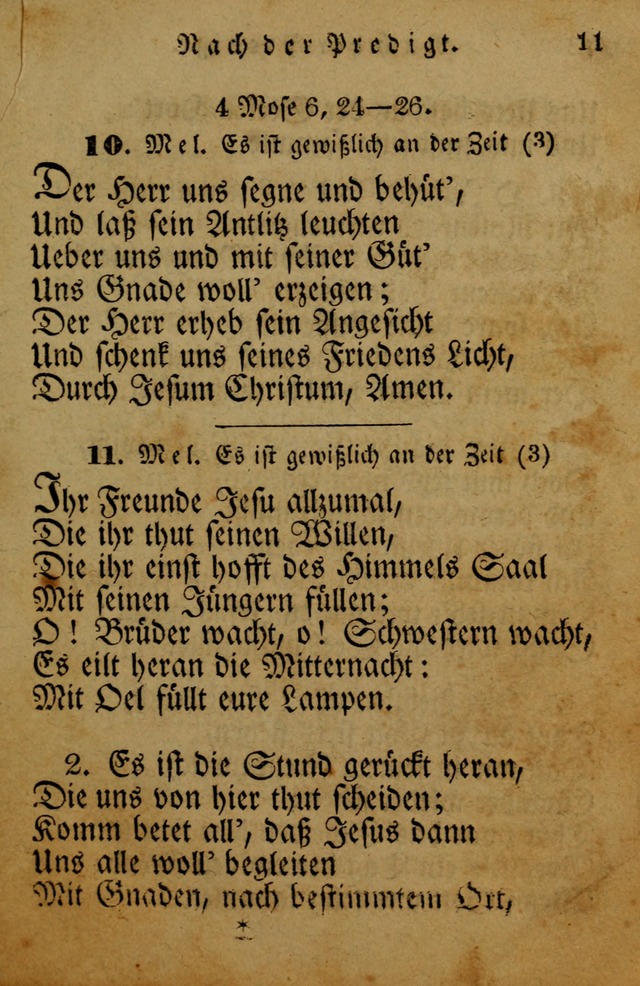 Nach der Predigt. 11
4 Mose 6, 24—26.
10. Mel. Es ist gewißlich an der Zeit (3)
Der Herr uns segne und behüt',
Und laß sein Antlitz leuchten
Ueber uns und mit seiner Güt'
Uns Gnade woll' erzeigen;
Der Herr erheb sein Angesicht
Und schenk uns seines Friedens Licht,
Durch Jesum Christum, Amen.
11. Mel. Es ist gewißlich an der Zeit (3)
Ihr Freunde Jesu allzumal,
Die ihr thut seinen Willen,
Die ihr einst hofft des Himmels Saal
Mit seinen Jüngern füllen;
O! Brüder wacht, o! Schwestern wacht,
Es eilt heran die Mitternacht:
Mit Oel füllt eure Lampen.
2. Es ist die Stund gerückt heran,
Die uns von hier thut scheiden;
Komm betet all', daß Jesus dann
Uns alle woll' begleiten
Mit Gnaden, nach bestimmtem Ort,
*